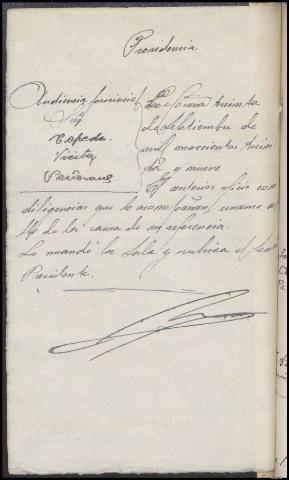 Providencia
Audiencia provincial
Cepeda
Vicita
La Coruña treinta
de Septiembre de
mil novecientos trein-
ta y nueve
El anterior oficio con
diligencias que lo acompañan, unanse al
de la causa de su referencia.
Lo mandó la Sala y rubrica el Señor
Presidente.